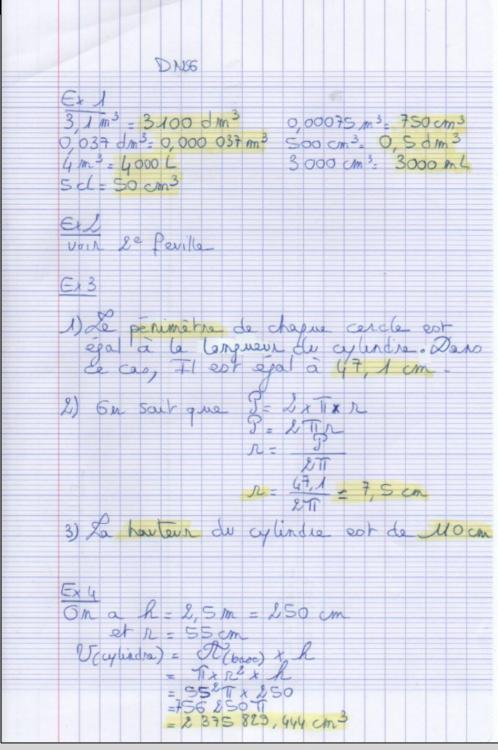 DN°6
Ex 1
3,1 m³ = 3100 dm³ 0,00075 m³ = 750 cm³
0,037 dm³ = 0,000 037 m³ 500 cm³ = 0,5 dm³
4 m³ = 4000 L 3 000 cm³ = 3000 mL
5 cl = 50 cm³
Ex 2
voir 2e feuille
Ex 3
1) Le périmètre de chaque cercle est
égal à la longueur du cylindre. Dans
ce cas, Il est égal à 47,1 cm.
2) On sait que P = 2 x π x r
P = 2πr
r = P
2π
r = 47,1 = 7,5 cm
2π
3) La hauteur du cylindre est de 110 cm
Ex 4
On a h = 2,5 m = 250 cm
et r = 55 cm
V(cylindre) = A(base) x h
= π x r² x h
= 55² π x 250
= 756 250 π
= 2 375 829,444 cm³